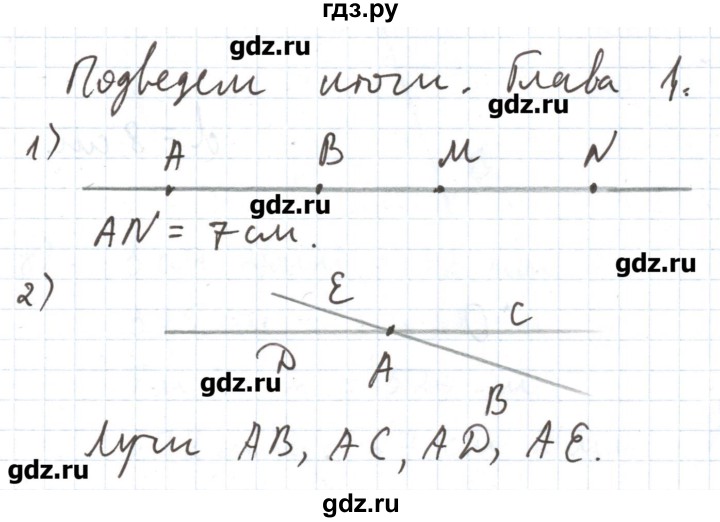 гдз.ру
gdz.ru
Подведем итоги. Глава 1.
gdz.ru
1)
A B M N
gdz.ru
AN = 7 см.
gdz.ru
2)
E C
D A
gdz.ru
B
Лучи AB, AC, AD, AE.
gdz.ru
gdz.ru